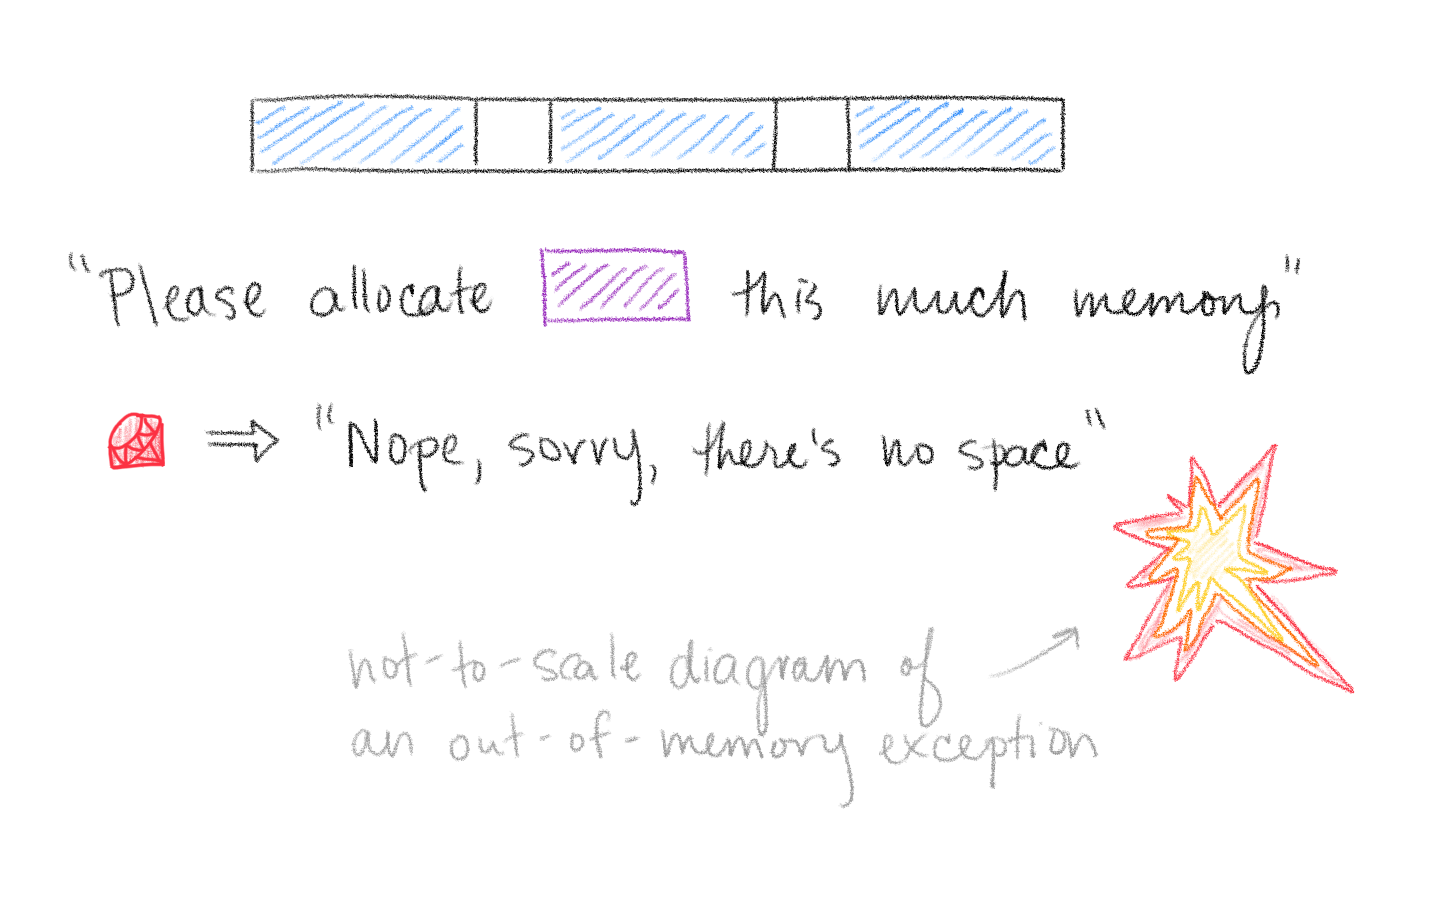 "Please allocate this much memory"
"Nope, sorry, there's no space"
not-to-scale diagram of
an out-of-memory exception